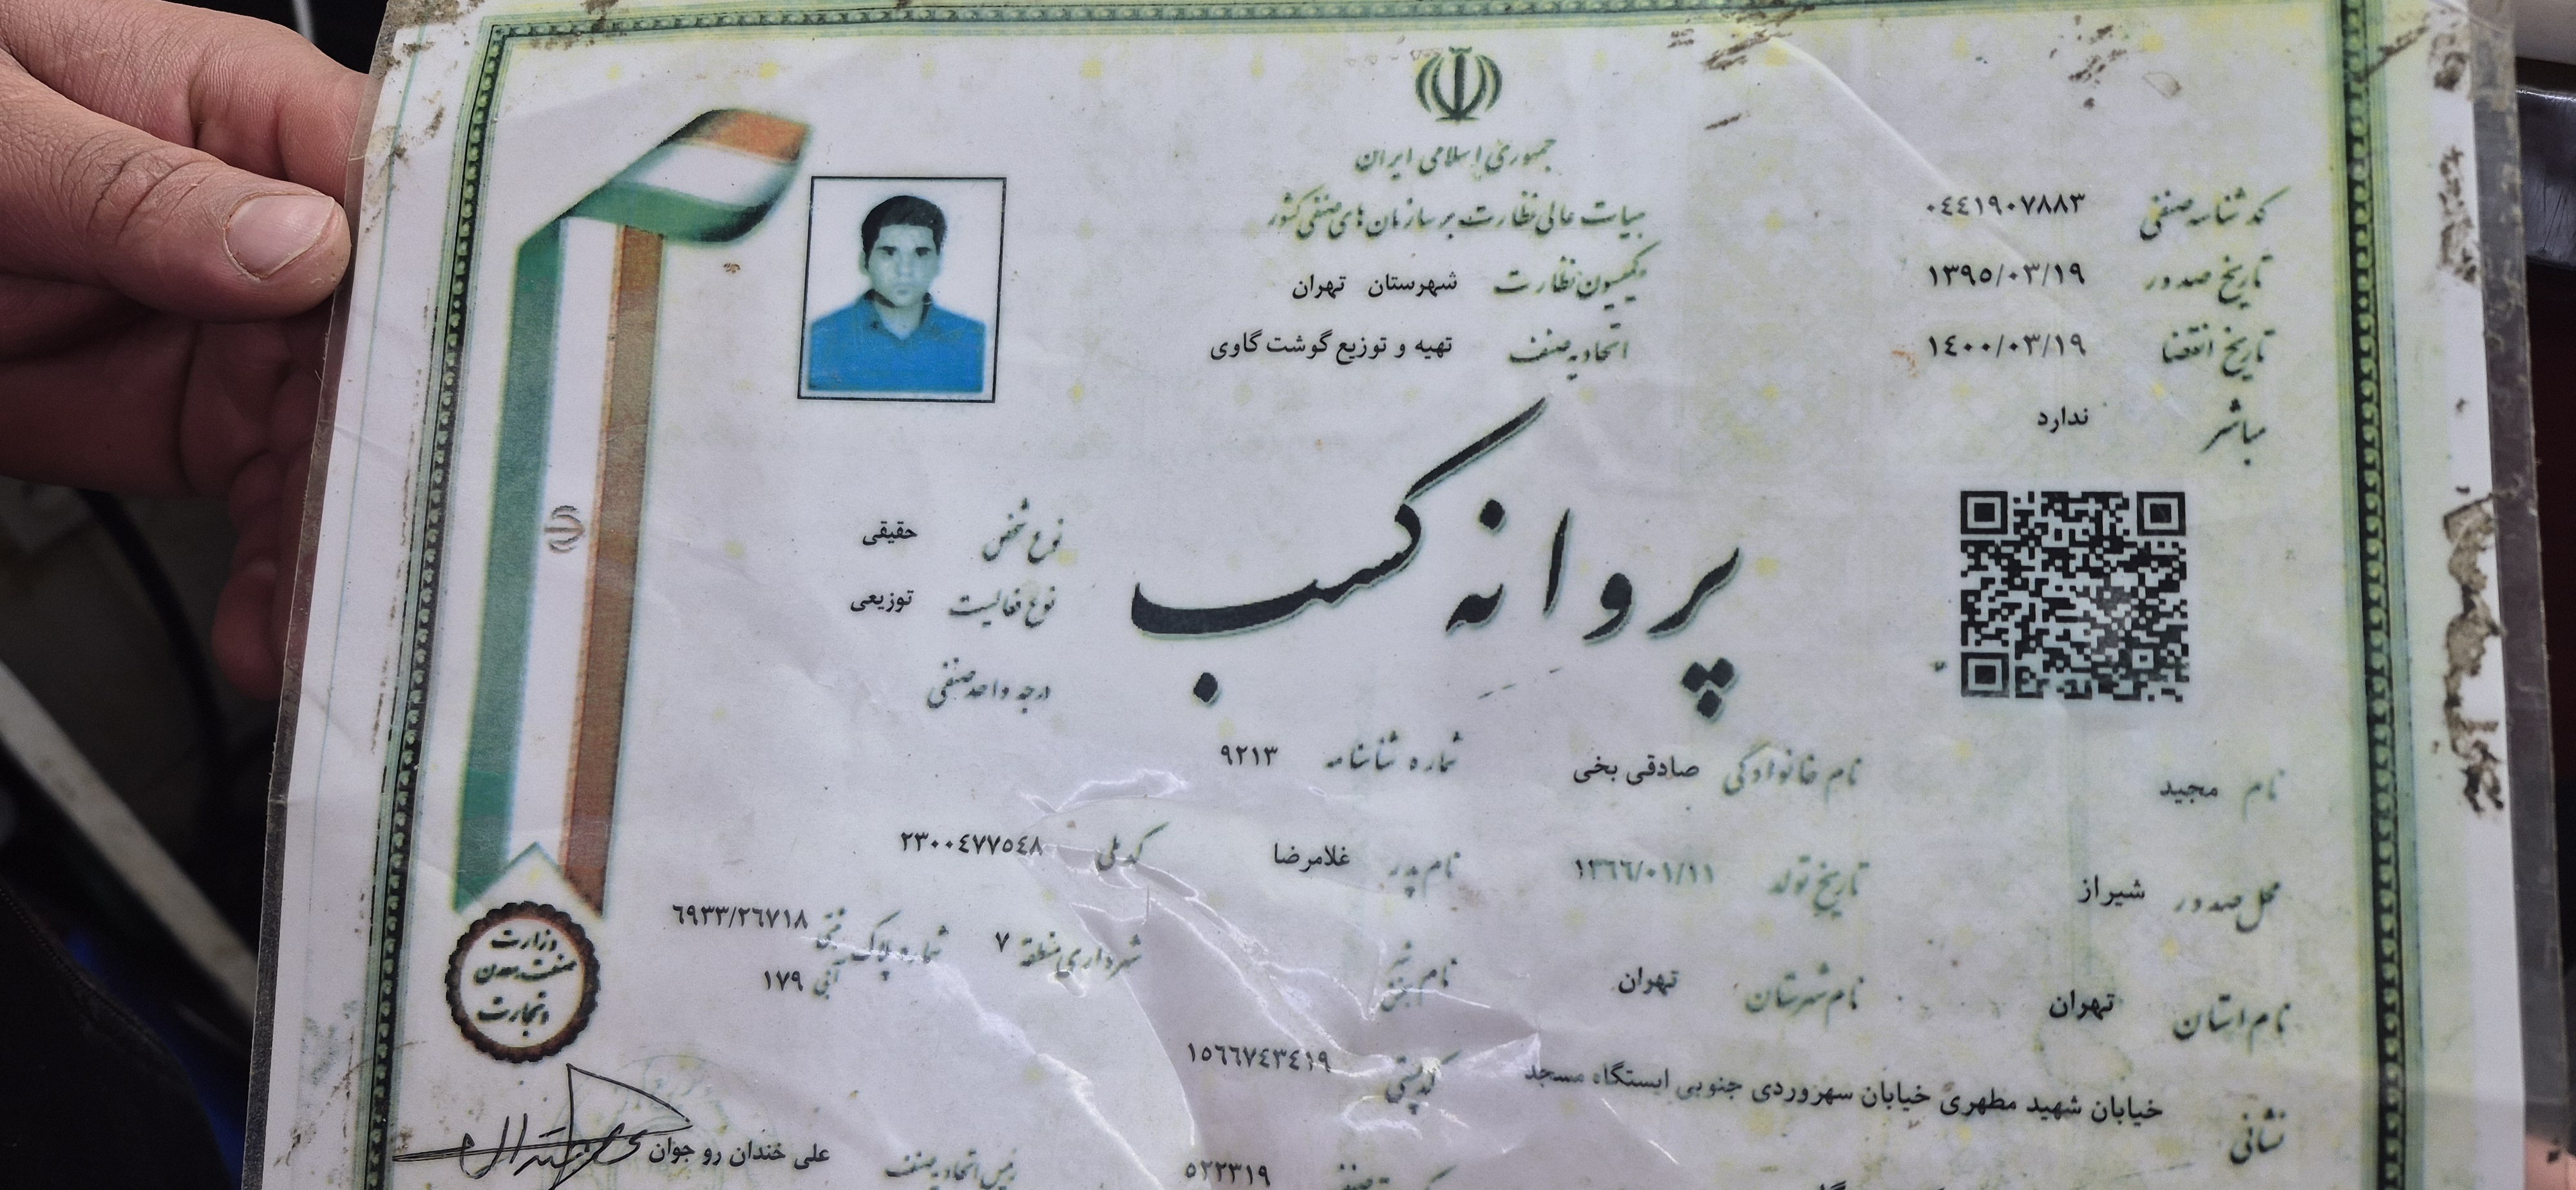 جمهوری اسلامی ایران
هیات عالی نظارت بر سازمان های صنفی کشور
کمیسیون نظارت شهرستان تهران
اتحادیه صنف تهیه و توزیع گوشت گاوی
کد شناسه صنفی ۰٤٤١٩٠٧٨٨٣
تاریخ صدور ١٣٩٥/٠٣/١٩
تاریخ انقضا ١٤٠٠/٠٣/١٩
مباشر ندارد
پروانه کسب
نوع شخص حقیقی
نوع فعالیت توزیعی
درجه واحد صنفی
نام مجید نام خانوادگی صادقی بخی شماره شناسنامه ٩٢١٣
محل صدور شیراز تاریخ تولد ١٣٦٦/٠١/١١ نام پدر غلامرضا کد ملی ٢٣٠٠٤٧٧٥٤٨
نام استان تهران نام شهرستان تهران نام شهر شهرداری منطقه ٧ شماره پلاک ثبتی ٦٩٣٣/٢٦٧١٨
آبی ١٧٩
نشانی خیابان شهید مطهری خیابان سهروردی جنوبی ایستگاه مسجد کد پستی ١٥٦٦٧٤٣٤١٩
٥٢٢٣١٩
رئیس اتحادیه صنف علی خندان رو جوان
وزارت
صنعت معدن
و تجارت